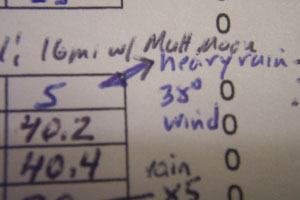 16mi w/ Matt
heavy rain
5
38° 0
40.2 wind 0
40.4 0
rain
x5 0